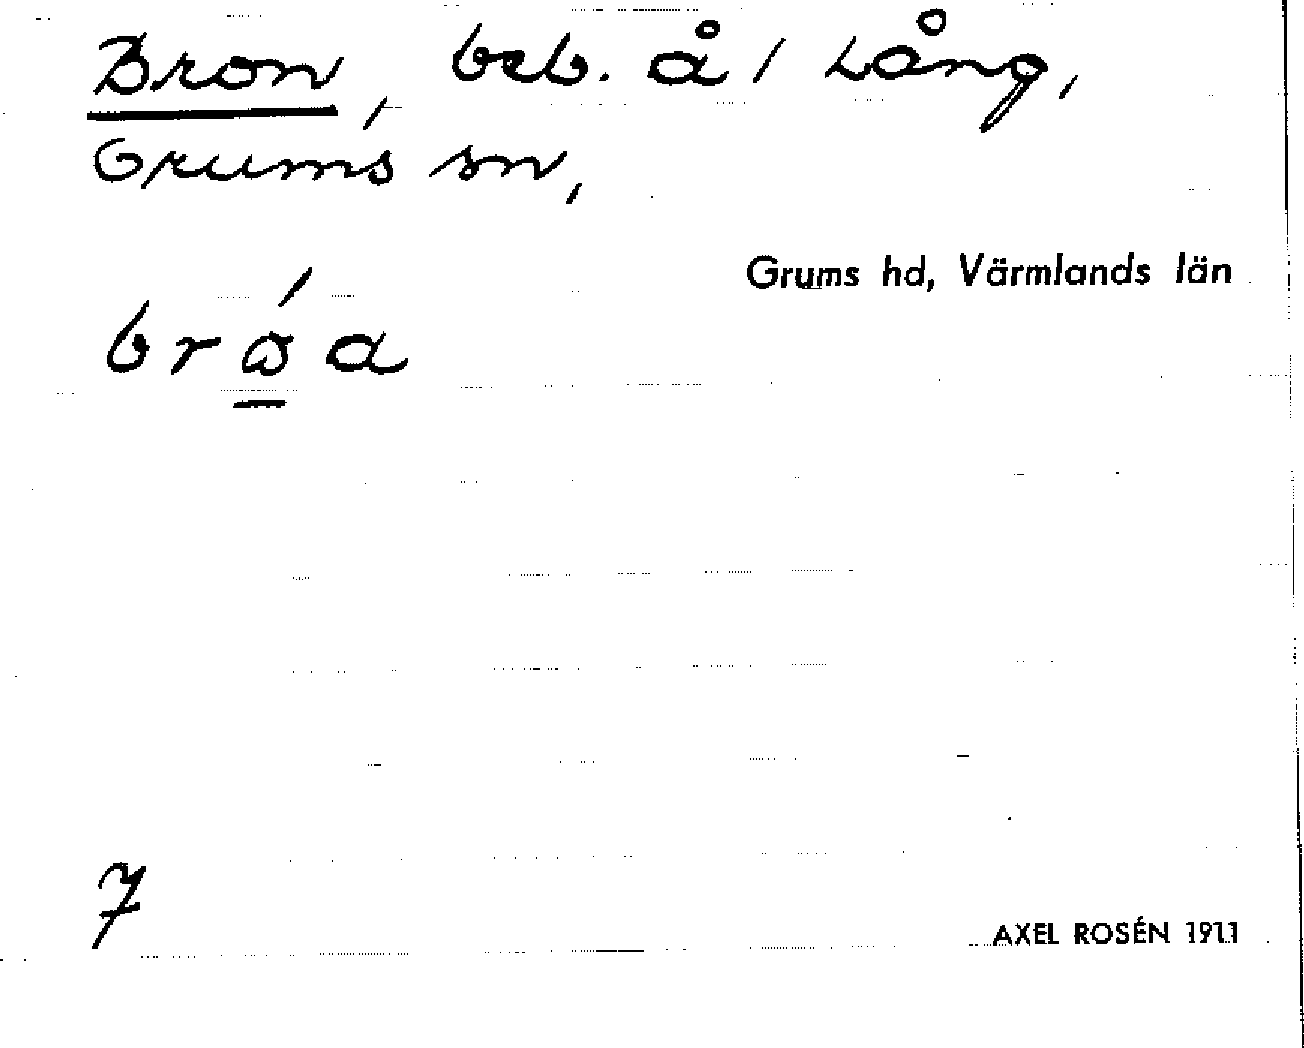 Bron, beb. å 1 Lång,
Grums sn,
Grums hd, Värmlands län
7
AXEL ROSÉN 1911